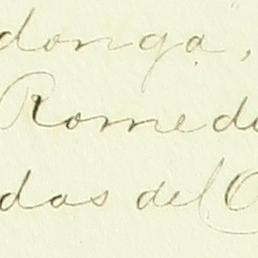 donga,
Romed
das del C